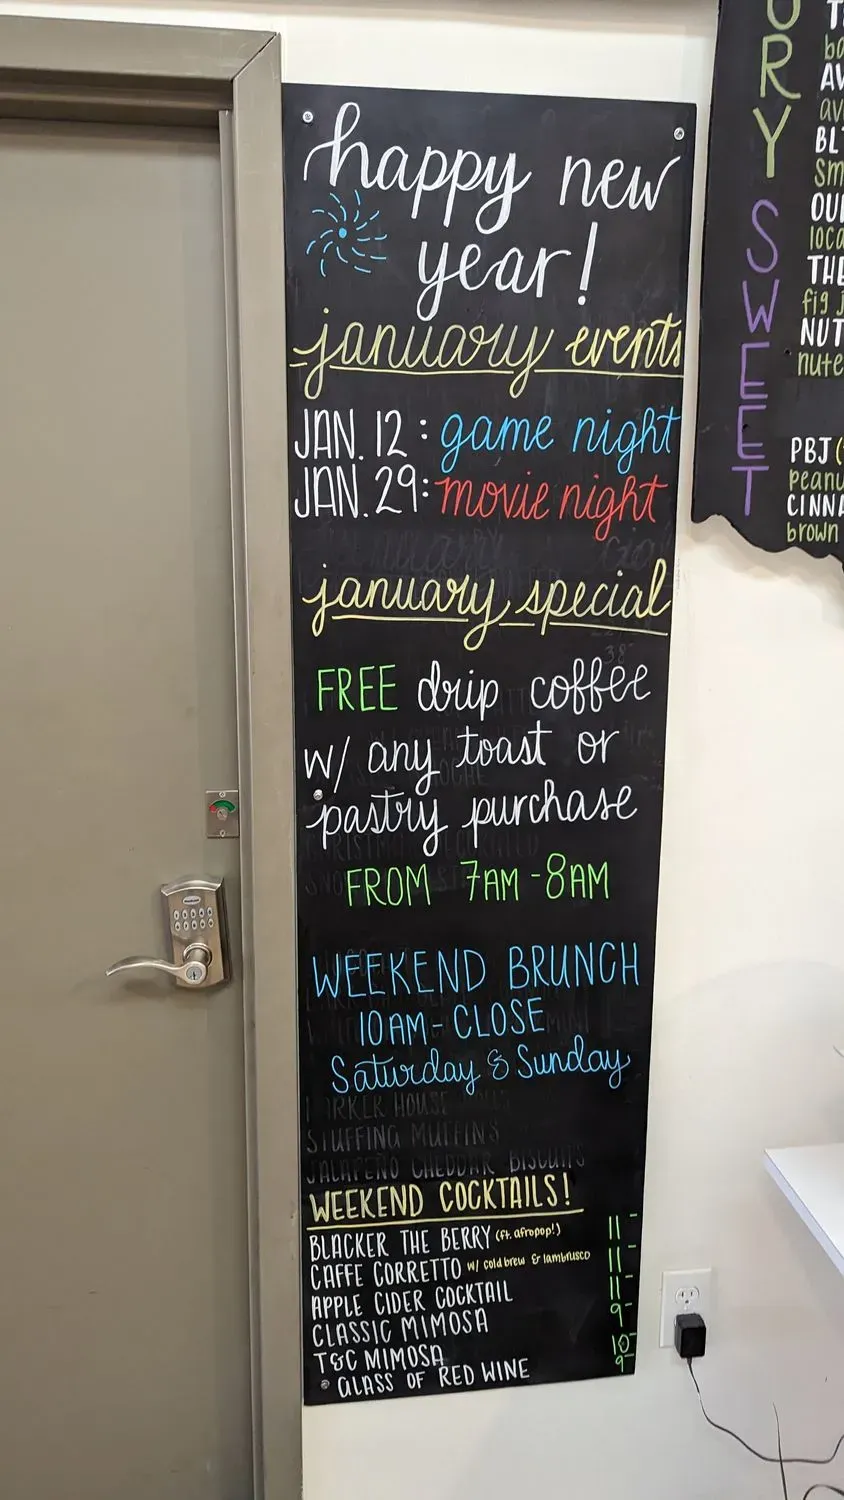 happy new
year!
january events
JAN. 12: game night
JAN. 29: movie night
january special
FREE drip coffee
w/ any toast or
pastry purchase
FROM 7AM - 8AM
WEEKEND BRUNCH
10AM - CLOSE
Saturday & Sunday
PARKER HOUSE
STUFFING MUFFINS
JALAPEÑO CHEDDAR BISCUITS
WEEKEND COCKTAILS!
BLACKER THE BERRY (ft. afropop!) 11-
CAFFE CORRETTO w/ cold brew & lambrusco 11-
APPLE CIDER COCKTAIL 11-
CLASSIC MIMOSA 9-
T&C MIMOSA 10-
GLASS OF RED WINE 9-
ORY
SWEET
BL
OU
THE
fig j
NUT
nute
PBJ (
peanu
CINNA
brown